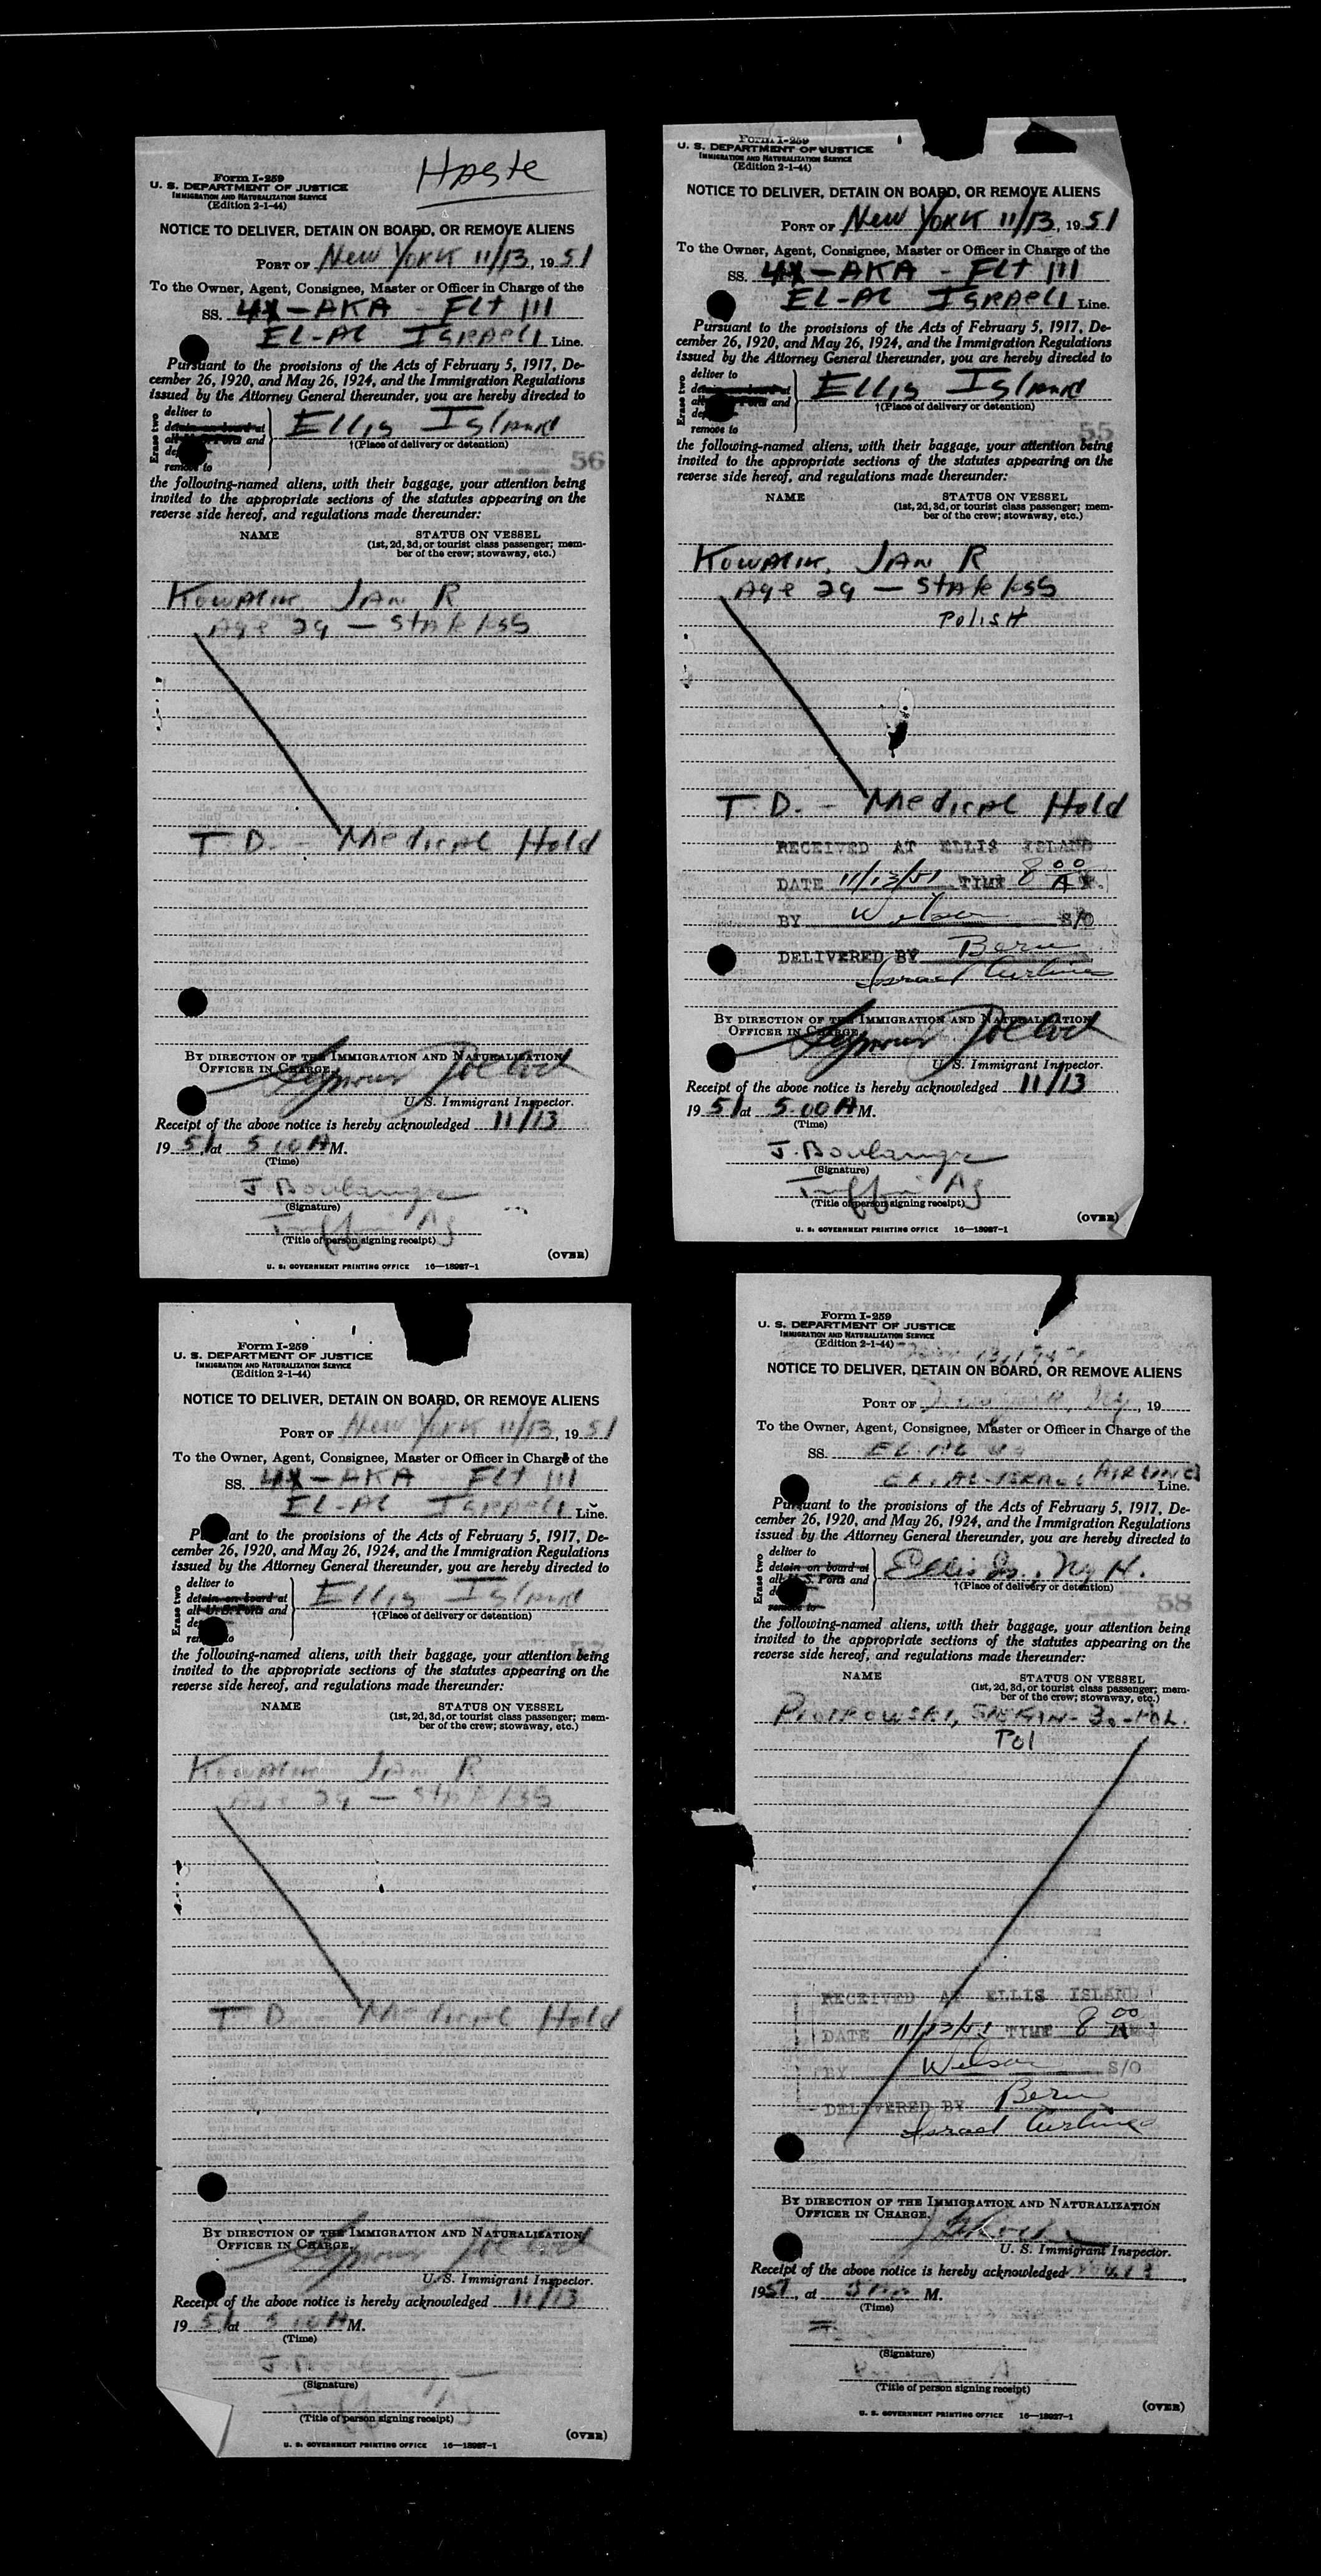 Haste
Form I-259
U. S. DEPARTMENT OF JUSTICE
IMMIGRATION AND NATURALIZATION SERVICE
(Edition 2-1-44)
NOTICE TO DELIVER, DETAIN ON BOARD, OR REMOVE ALIENS
PORT OF New York 11/13, 1951
To the Owner, Agent, Consignee, Master or Officer in Charge of the
SS. 4X-AKA - FLt 111
EL-AL ISRAELI Line.
Pursuant to the provisions of the Acts of February 5, 1917, De-
cember 26, 1920, and May 26, 1924, and the Immigration Regulations
issued by the Attorney General thereunder, you are hereby directed to
Erase two
deliver to
detain on board at
all U. S. Ports and
remove to
Ellis Island
†(Place of delivery or detention)
56
the following-named aliens, with their baggage, your attention being
invited to the appropriate sections of the statutes appearing on the
reverse side hereof, and regulations made thereunder:
NAME STATUS ON VESSEL
(1st, 2d, 3d, or tourist class passenger; mem-
ber of the crew; stowaway, etc.)
Kowalik, Jan R
Age 29 - Stateless
T.D. - Medical Hold
BY DIRECTION OF THE IMMIGRATION AND NATURALIZATION
OFFICER IN CHARGE.
Seymour
U. S. Immigrant Inspector.
Receipt of the above notice is hereby acknowledged 11/13
1951, at 5 10 A M.
(Time)
J. Boulanger
(Signature)
(Title of person signing receipt)
(OVER)
U. S. GOVERNMENT PRINTING OFFICE 16—18927-1
Form I-259
U. S. DEPARTMENT OF JUSTICE
IMMIGRATION AND NATURALIZATION SERVICE
(Edition 2-1-44)
NOTICE TO DELIVER, DETAIN ON BOARD, OR REMOVE ALIENS
PORT OF New York 11/13, 1951
To the Owner, Agent, Consignee, Master or Officer in Charge of the
SS. 4X-AKA - FLt 111
EL-AL ISRAELI Line.
Pursuant to the provisions of the Acts of February 5, 1917, De-
cember 26, 1920, and May 26, 1924, and the Immigration Regulations
issued by the Attorney General thereunder, you are hereby directed to
Erase two
deliver to
detain on board at
all U. S. Ports and
remove to
Ellis Island
†(Place of delivery or detention)
55
the following-named aliens, with their baggage, your attention being
invited to the appropriate sections of the statutes appearing on the
reverse side hereof, and regulations made thereunder:
NAME STATUS ON VESSEL
(1st, 2d, 3d, or tourist class passenger; mem-
ber of the crew; stowaway, etc.)
Kowalik, Jan R
Age 29 - Stateless
Polish
T.D. - Medical Hold
RECEIVED AT ELLIS ISLAND
DATE 11/13/51 TIME 8 00 A M.
BY Wilson S/O
DELIVERED BY Bern
Israel Airlines
BY DIRECTION OF THE IMMIGRATION AND NATURALIZATION
OFFICER IN CHARGE.
Seymour
U. S. Immigrant Inspector.
Receipt of the above notice is hereby acknowledged 11/13
1951 at 5.00 A M.
(Time)
J. Boulanger
(Signature)
(Title of person signing receipt)
(OVER)
U. S. GOVERNMENT PRINTING OFFICE 16—18927-1
Form I-259
U. S. DEPARTMENT OF JUSTICE
IMMIGRATION AND NATURALIZATION SERVICE
(Edition 2-1-44)
NOTICE TO DELIVER, DETAIN ON BOARD, OR REMOVE ALIENS
PORT OF New York 11/13, 1951
To the Owner, Agent, Consignee, Master or Officer in Charge of the
SS. 4X-AKA FLt 111
EL-AL ISRAELI Line.
Pursuant to the provisions of the Acts of February 5, 1917, De-
cember 26, 1920, and May 26, 1924, and the Immigration Regulations
issued by the Attorney General thereunder, you are hereby directed to
Erase two
deliver to
detain on board at
all U. S. Ports and
Ellis Island
†(Place of delivery or detention)
57
the following-named aliens, with their baggage, your attention being
invited to the appropriate sections of the statutes appearing on the
reverse side hereof, and regulations made thereunder:
NAME STATUS ON VESSEL
(1st, 2d, 3d, or tourist class passenger; mem-
ber of the crew; stowaway, etc.)
Kowalik Jan R
Age 29 - Stateless
T D Medical Hold
BY DIRECTION OF THE IMMIGRATION AND NATURALIZATION
OFFICER IN CHARGE.
Seymour
U. S. Immigrant Inspector.
Receipt of the above notice is hereby acknowledged 11/13
1951, at 5 10 A M.
(Time)
J. Boulanger
(Signature)
(Title of person signing receipt)
(OVER)
U. S. GOVERNMENT PRINTING OFFICE 16—18927-1
Form I-259
U. S. DEPARTMENT OF JUSTICE
IMMIGRATION AND NATURALIZATION SERVICE
(Edition 2-1-44)
NOTICE TO DELIVER, DETAIN ON BOARD, OR REMOVE ALIENS
PORT OF , 19
To the Owner, Agent, Consignee, Master or Officer in Charge of the
SS. EL AL
EL AL-ISRAEL AIRLINES Line.
Pursuant to the provisions of the Acts of February 5, 1917, De-
cember 26, 1920, and May 26, 1924, and the Immigration Regulations
issued by the Attorney General thereunder, you are hereby directed to
Erase two
deliver to
detain on board at
all U. S. Ports and
remove to
Ellis Is., N.Y.H.
†(Place of delivery or detention)
58
the following-named aliens, with their baggage, your attention being
invited to the appropriate sections of the statutes appearing on the
reverse side hereof, and regulations made thereunder:
NAME STATUS ON VESSEL
(1st, 2d, 3d, or tourist class passenger; mem-
ber of the crew; stowaway, etc.)
PIOTROWSKI,
Pol
RECEIVED AT ELLIS ISLAND
DATE 11/13/51 TIME 8 00 A
BY Wilson S/O
DELIVERED BY Bern
Israel Airlines
BY DIRECTION OF THE IMMIGRATION AND NATURALIZATION
OFFICER IN CHARGE.
U. S. Immigrant Inspector.
Receipt of the above notice is hereby acknowledged
1951, at M.
(Time)
(Signature)
(Title of person signing receipt)
(OVER)
U. S. GOVERNMENT PRINTING OFFICE 16—18927-1